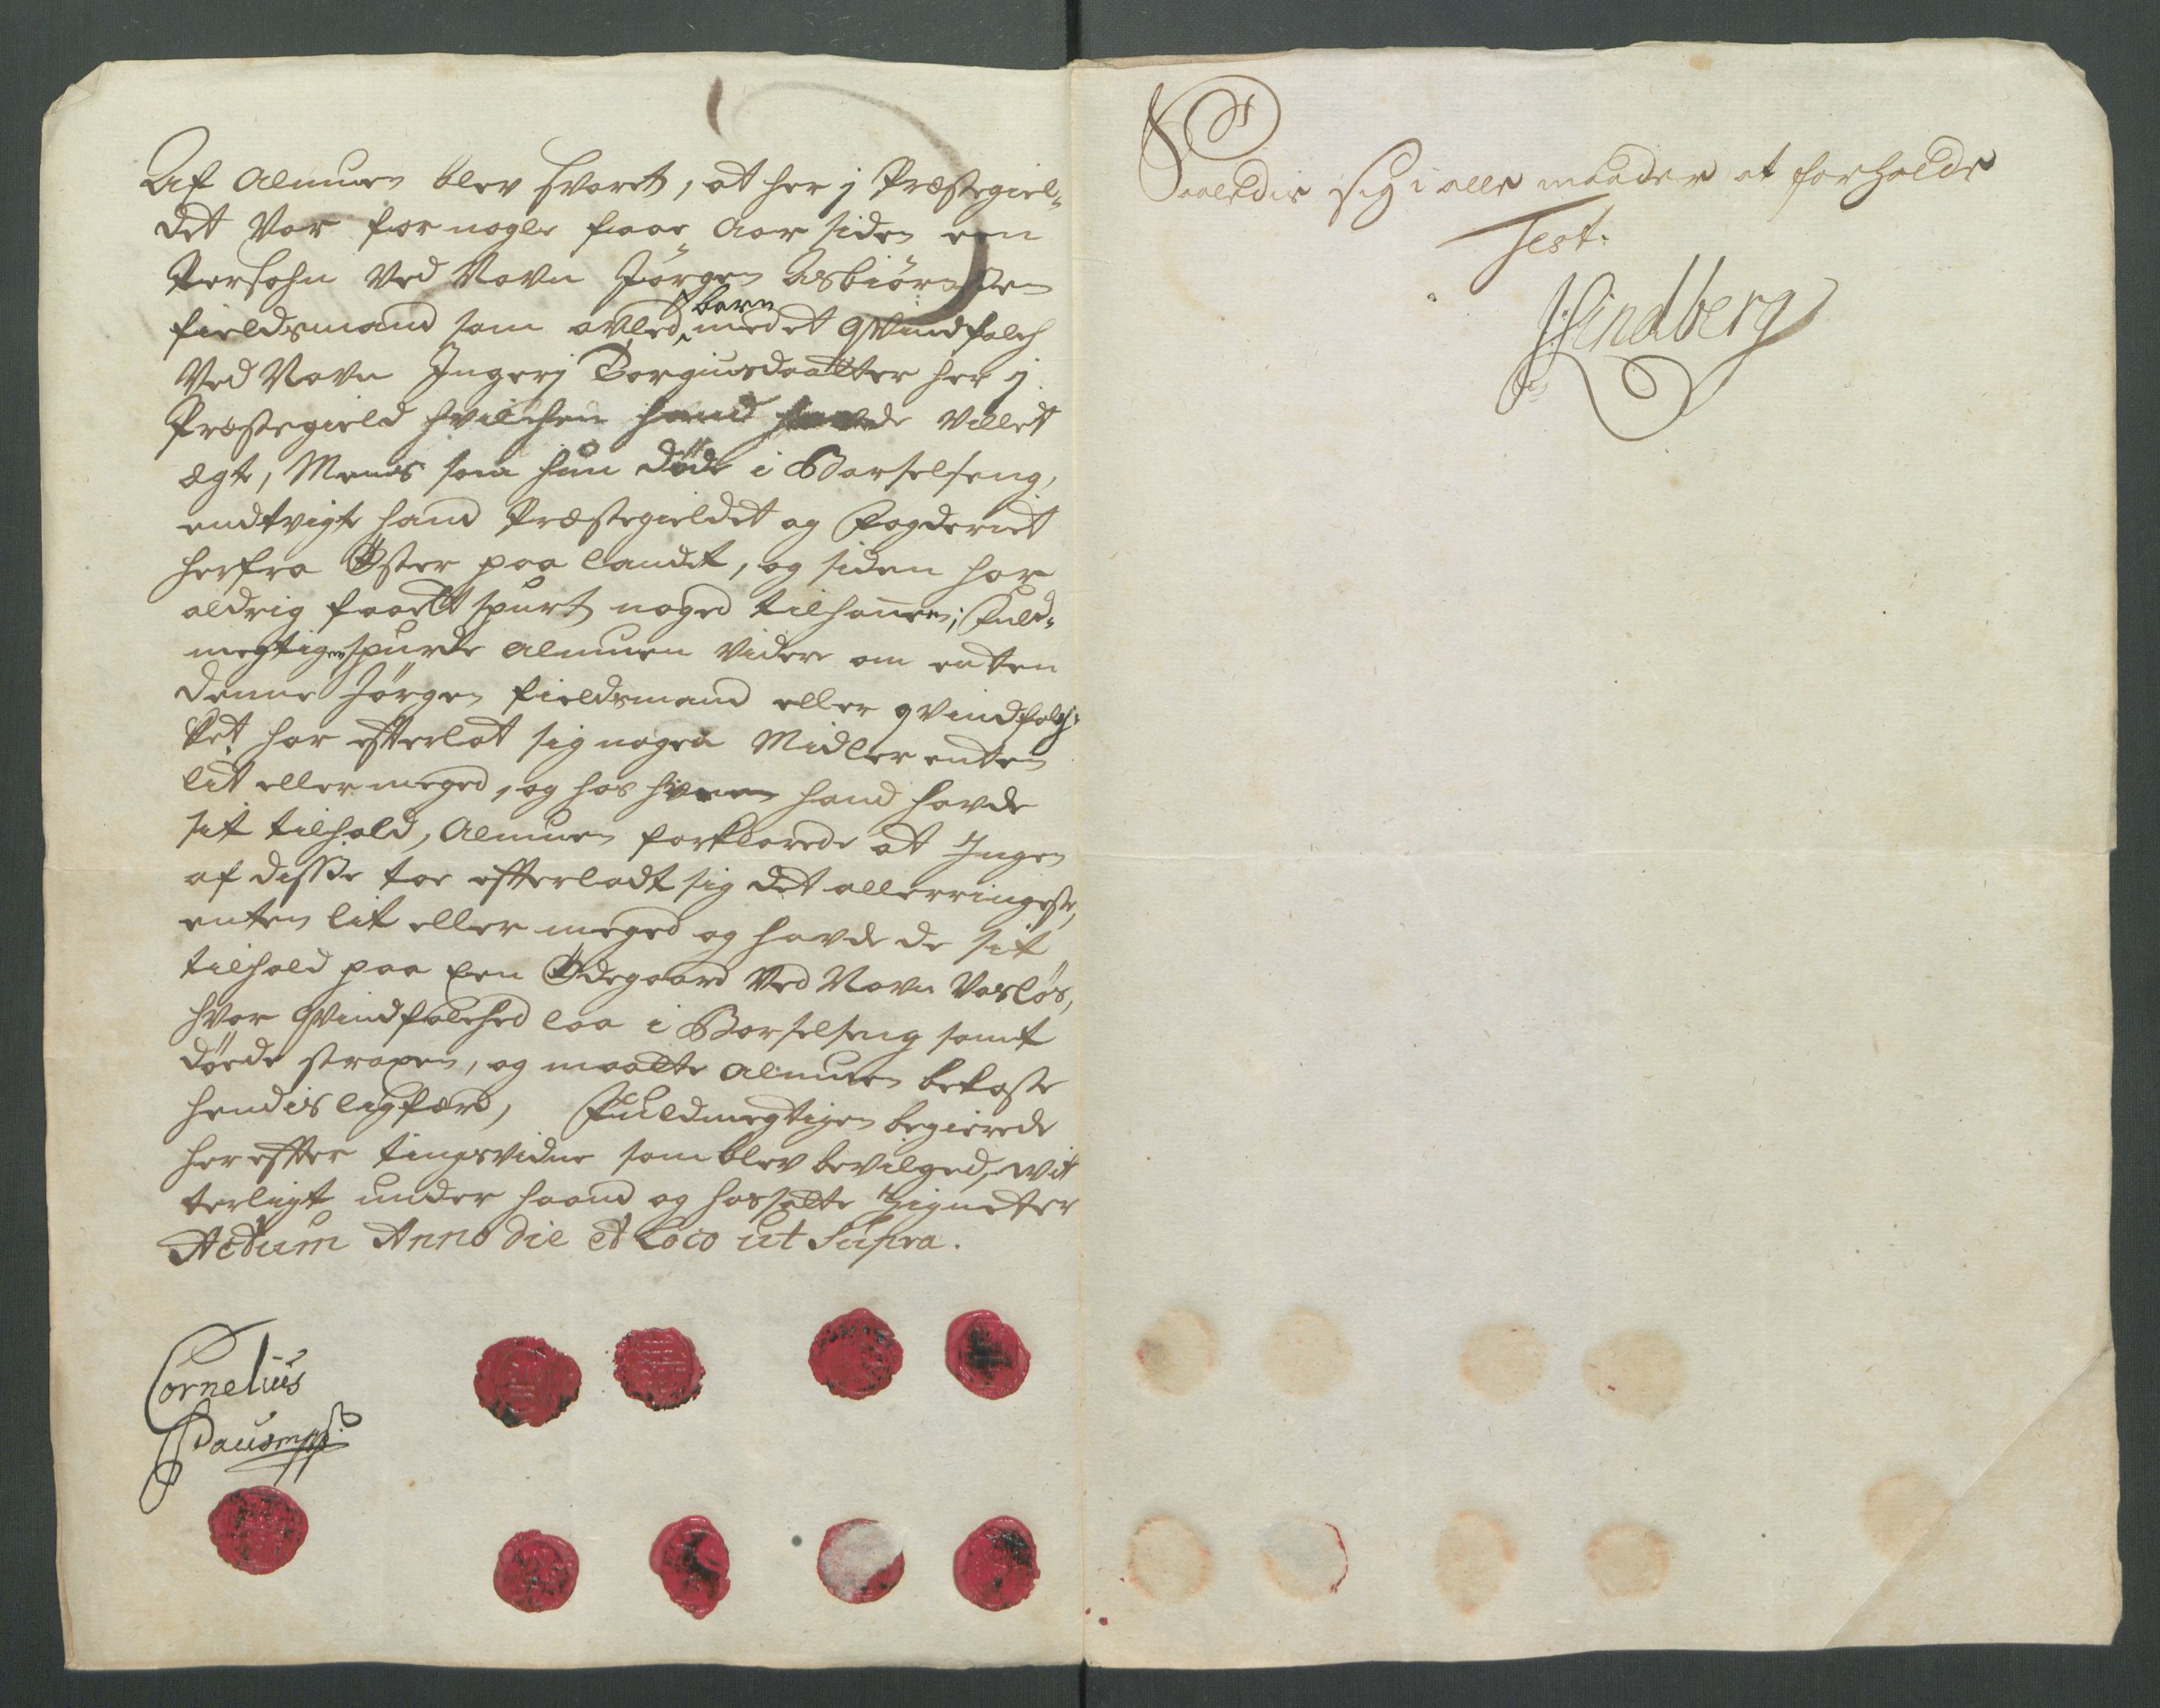 Af Almuen blev svaret, at her j Præstegiel„
det Var for nogle faae Aar siden een
Persohn Ved Navn Jørgen Asbiørnsen
fieldsmand som avled barn med et qvindfolch
Ved Navn Ingerj Torgiusdaatter her j
Præstegield hvilchen hand havde Villet
ægte, Mens som hun døde i Barselseng,
endtvigte hand Præstegieldet og Fogderiet
herfra Øster paa landet, og siden har
aldrig faaett spurt noged til hannem; Fuld„
megtigen spurte Almuen videre om enten
denne Jørgen fieldsmand eller qvindfolch„
ket har efterlat sig nogen Midler enten
lit eller meged, og hos hvem hand havde
sit tilhold, Almuen forklarede at Ingen
af disse toe efterladt sig det allerringeste,
enten lit eller meged og havde de sit
tilhold paa een Ødegaard Ved Navn Vasløs,
hvor qvindfolched laa i Barselseng samt
døede straxen, og maatte Almuen bekoste
hendis ligferd, Fuldmegtigen begierede
her efter tingsvidne som blev bevilged, Wit
terligt under haand og hossatte Zigneter
Actum Anno die et Loco ut Supra.
Cornelius
Paus mpp.
Saaledis sig i alle maader at forholde
Test.
Lindberg